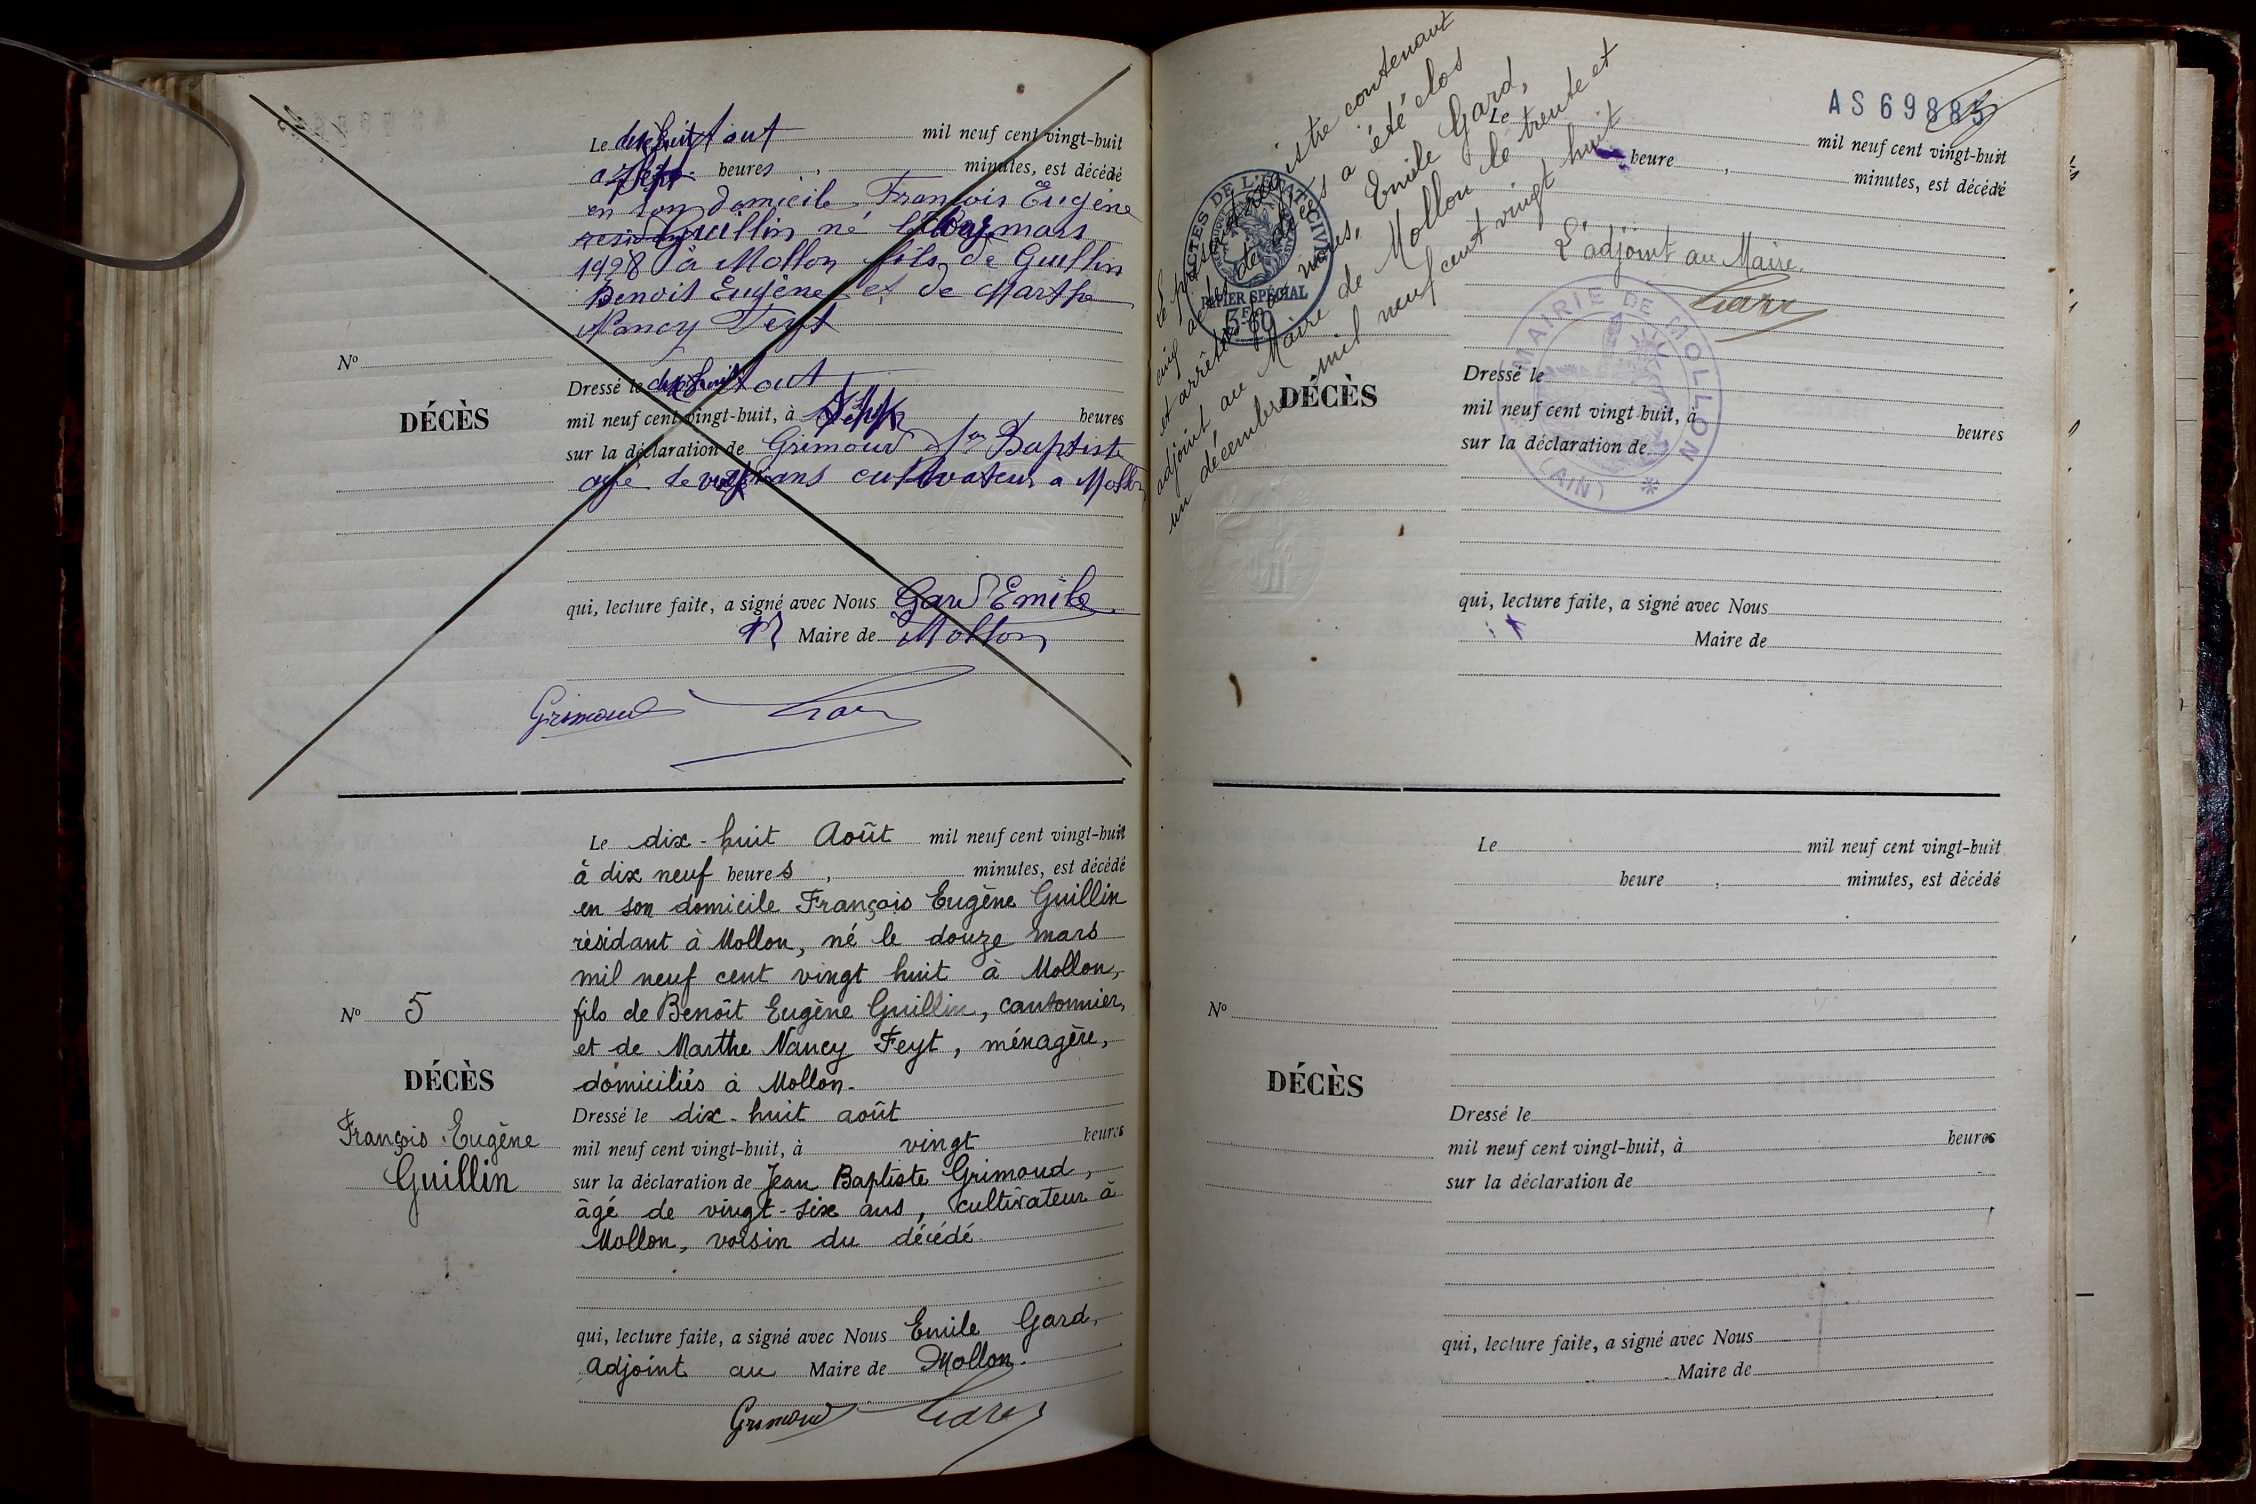 Le dix huit aout mil neuf cent vingt-huit
a heures, minutes, est décédé
en son domicile François Eugène
Guillin né le mars
1928 à Mollon fils de Guillin
Benoit Eugène et de Marthe
Nancy Feyt
N°
DÉCÈS
Dressé le dix huit aout
mil neuf cent vingt-huit, à heures
sur la déclaration de Grimoud Jn Baptiste
agé de ans cultivateur a Mollon
qui, lecture faite, a signé avec Nous Gard Emile
Maire de Mollon
Grimoud Gard
Le dix-huit Août mil neuf cent vingt-huit
à dix neuf heures, minutes, est décédé
en son domicile François Eugène Guillin
résidant à Mollon, né le douze mars
mil neuf cent vingt huit à Mollon,
N° 5
fils de Benoît Eugène Guillin, cantonnier,
et de Marthe Nancy Feyt, ménagère,
DÉCÈS
domiciliés à Mollon.
François Eugène
Guillin
Dressé le dix-huit août
mil neuf cent vingt-huit, à vingt heures
sur la déclaration de Jean Baptiste Grimoud,
âgé de vingt-six ans, cultivateur à
Mollon, voisin du décédé.
qui, lecture faite, a signé avec Nous Emile Gard,
adjoint au Maire de Mollon.
Grimoud Gard
Le présent registre contenant
cinq actes de décès a été clos
et arrêté par nous, Emile Gard,
adjoint au Maire de Mollon le trente et
un décembre mil neuf cent vingt huit
L'adjoint au Maire.
Gard
AS 69885
ACTES DE L'ETAT CIVIL
PAPIER SPÉCIAL
3F60
MAIRIE DE MOLLON
(AIN)
Le mil neuf cent vingt-huit
heure, minutes, est décédé
DÉCÈS
Dressé le
mil neuf cent vingt-huit, à heures
sur la déclaration de
qui, lecture faite, a signé avec Nous
Maire de
Le mil neuf cent vingt-huit
heure, minutes, est décédé
N°
DÉCÈS
Dressé le
mil neuf cent vingt-huit, à heures
sur la déclaration de
qui, lecture faite, a signé avec Nous
Maire de